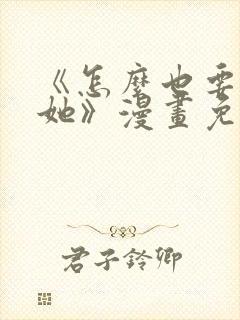 《怎麼也要
她》漫畫免
君子鈴卿